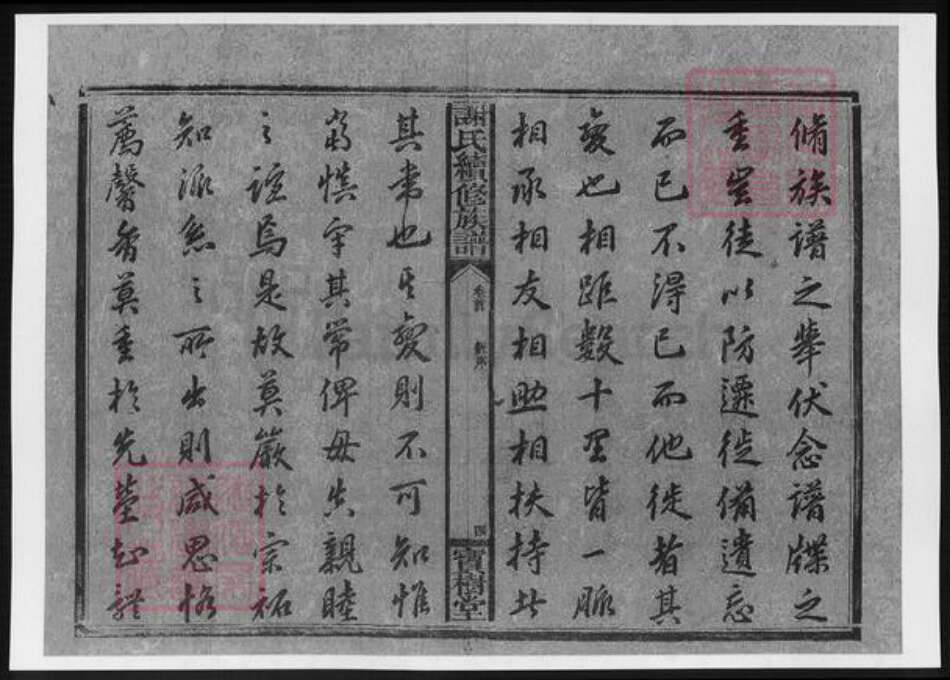 脩族譜之舉伏念譜牒之
重豈徒以防遷徙備遺忘
而已不得已而他徙者其
變也相距數十里皆一脈
相承相友相助相扶持此
謝氏續修族譜
卷首 新序
四
寶樹堂
其常也其變則不可知惟
當慎守其常俾毋失親睦
之誼焉是故莫嚴於宗祏
知源系之所出則咸思恪
薦馨香莫重於先塋